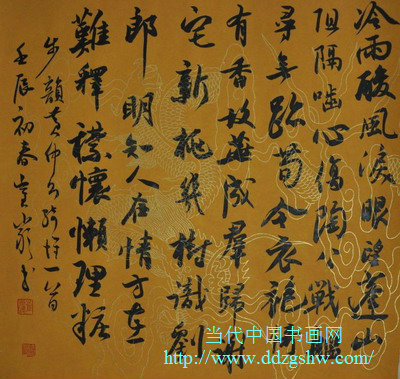 冷雨酸風淚眼望蓬山
阻隔嚙心傷陶公戰
尋無跡荀令衣
有香故燕成羣歸林
宅新桃幾樹識劉
郎明知人在情方在
難釋襟懷懶理粧
步韻黃仲一首
壬辰初春
当代中国书画网
http://www.ddzgshw.com/